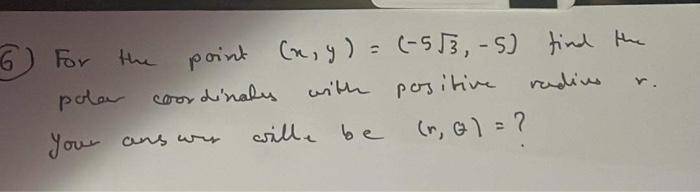 6) For the point (x, y) = (-5√3, -5) find the
polar coordinates with positive radius r.
Your answer will be (r, θ) = ?